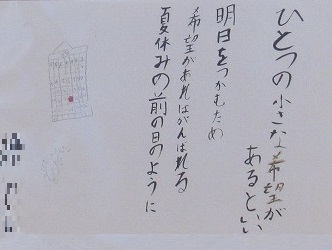 ひとつの小さな希望が
あるといい
明日をつかむため
希望があればがんばれる
夏休みの前の日のように